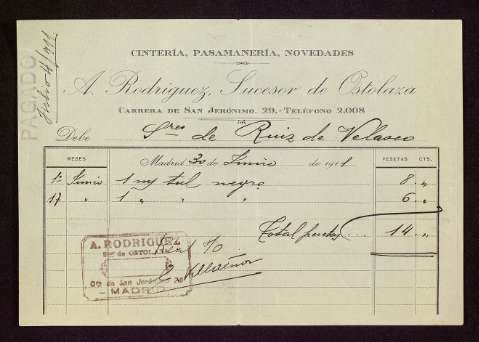 CINTERÍA, PASAMANERÍA, NOVEDADES
A. Rodríguez, Sucesor de Ostolaza
CARRERA DE SAN JERÓNIMO, 29.-TELÉFONO 2.008
PAGADO
Julio 4/911
Debe Sres de Ruiz de Velasco
MESES
Madrid 30 de Junio de 1911
PESETAS CTS.
1º Junio 1 m/ tul negro 8 „
17 „ 1 „ „ „ 6 „
Total pesetas 14 „
A. RODRIGUEZ
Sor de OSTOLAZA
Cra de San Jerónimo 29
- MADRID -